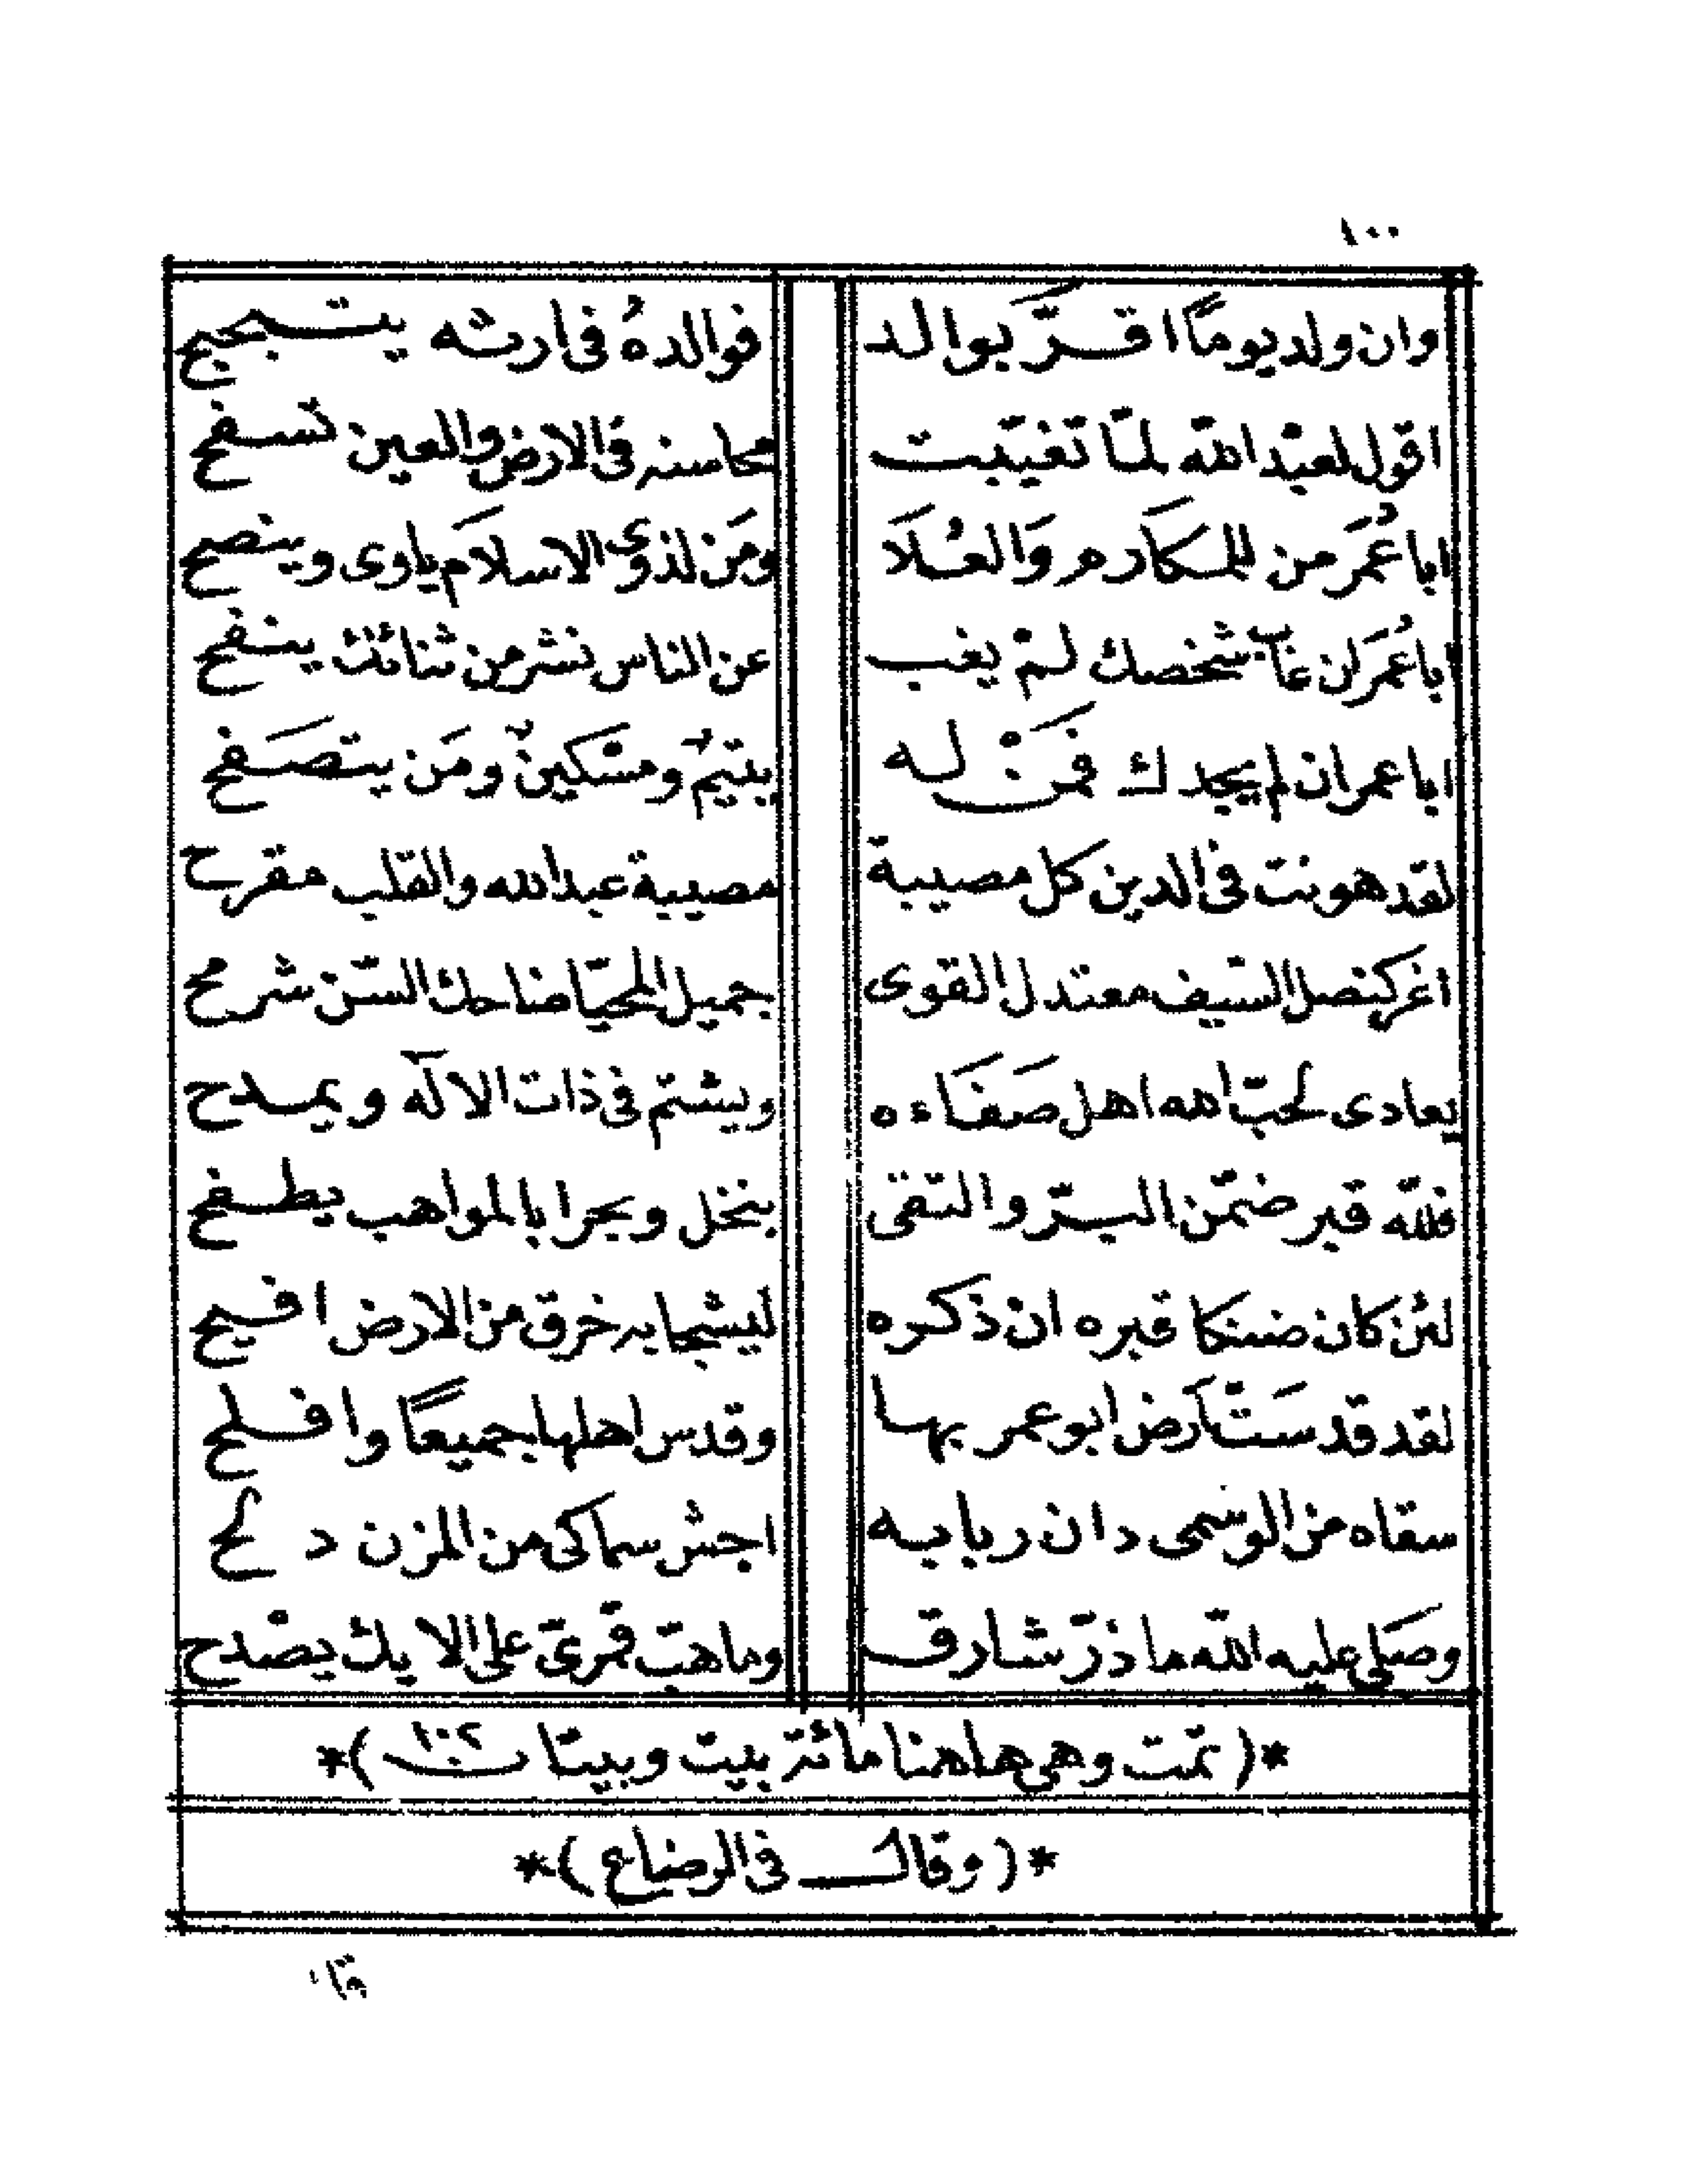 ١٠٠
وان ولد يومًا اقرَّ بوالد فوالدهُ فى ارثه يتبجبح
اقول لعبْد اللّه لمّا تغيّبت محاسنه فى الارض والعين تسفح
ابا عُمَر من للمكَارم وَالعُلَا ومَن لذوى الاسلَام ياوى وينصح
اباعُمَر ان غاب شخصك لمْ يغب عن الناس نشر من ثنائك ينفح
ابا عمر ان لم يجدك فمَنْ له يتيمٌ ومسْكينٌ ومَن يتصَفح
لقد هونت فى الدين كل مصيبة مصيبة عبد الله والقلب مقرح
اغر كنصل السّيف معتدل القوى جميل المحيّا ضاحك السّن شرمح
يعادى لحبّ الله اهل صَفَاءه ويشتم فى ذات الالَه ويمدح
فللّه قبر ضمّن البرّ والتقى بنخل وبحرا بالمواهب يطفح
لئن كان ضنكا قبره ان ذكره ليشجابه خرق من الارض افيح
لقد قدسَتْ ارض ابوعمر بها وقدس اهلها جميعًا وافلح
سقاه من الوسمى دان ربابه اجش سماكى من المزن دلح
وصَلى عليه اللّه ما ذرّ شارق وما هبّ قمرىّ على الايك يصْدح
*( تمت وهى هاهنا مائة بيت وبيتان ١٠٢ )*
*( وقال فى الرضاع )*